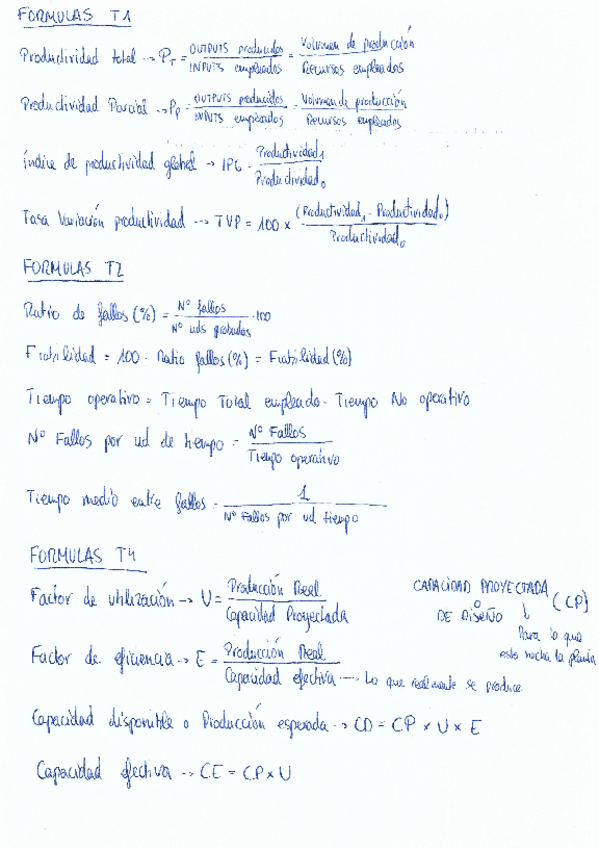 FORMULAS T1
Productividad total → P_T = OUTPUTS producidos / INPUTS empleados = Volumen de producción / Recursos empleados
Productividad Parcial → P_P = OUTPUTS producidos / INPUTS empleados = Volumen de producción / Recursos empleados
Índice de productividad global → IPG = Productividad₁ / Productividad₀
Tasa Variación productividad → TVP = 100 x (Productividad₁ - Productividad₀) / Productividad₀
FORMULAS T2
Ratio de fallos (%) = Nº fallos / Nº uds probadas · 100
Fiabilidad = 100 - Ratio fallos (%) = Fiabilidad (%)
Tiempo operativo = Tiempo Total empleado - Tiempo No operativo
Nº Fallos por ud de tiempo = Nº Fallos / Tiempo operativo
Tiempo medio entre fallos = 1 / Nº Fallos por ud tiempo
FORMULAS T4
Factor de utilización → U = Producción Real / Capacidad Proyectada
CAPACIDAD PROYECTADA
o
DE DISEÑO (CP)
↳ Para lo que
esta hecha la planta
Factor de eficiencia → E = Producción Real / Capacidad efectiva → Lo que realmente se produce
Capacidad disponible o Producción esperada → CD = CP x U x E
Capacidad efectiva → CE = CP x U